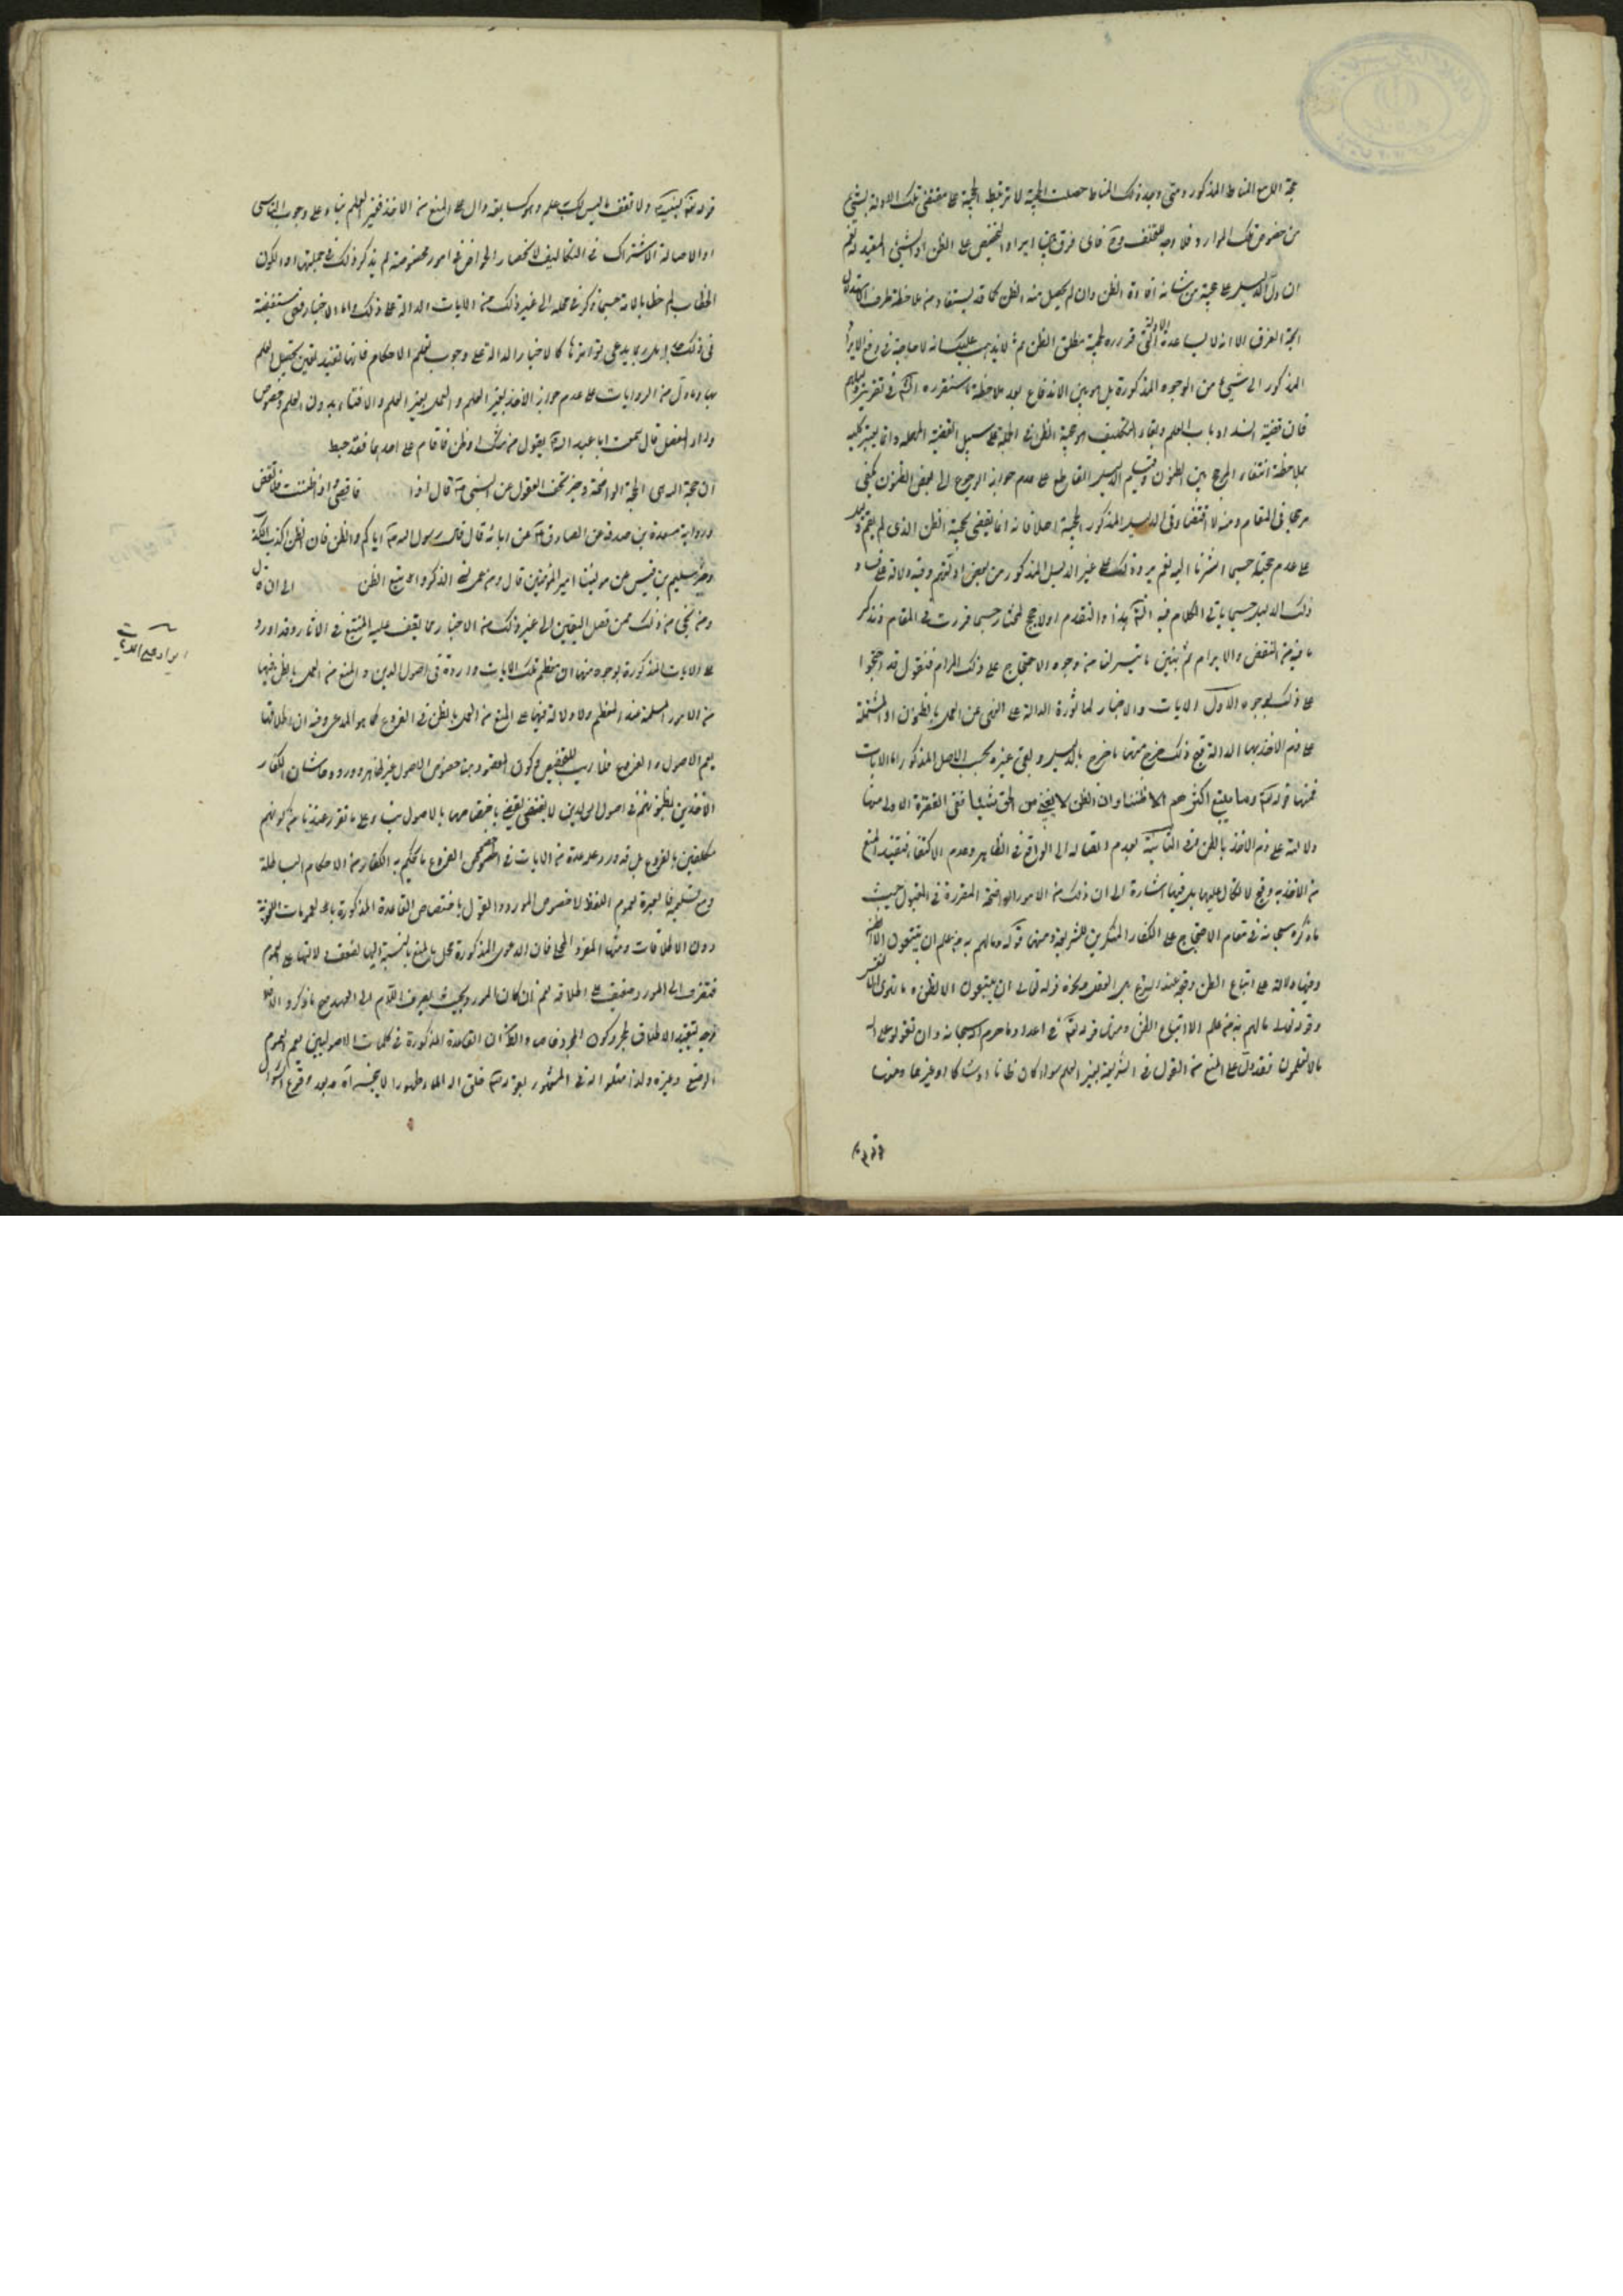 حجة اللمع المناط المذكور ومتى وجد ذلك المناط حصلت الحجية لا ترتبط الحجية على مقتضى تلك الادلة بشيء
من خصوص تلك الموارد فلا وجه للتخلف وح فاى فرق بين ايراد التخصيص على الظن او الشيء المفيد له نعم
ان دل الدليل على حجية من شانه افادة الظن وان لم يحصل منه الظن كما قد يستفاد من ملاحظة طرف الاستدلال
اتجه الفرق الا انه لا يساعده الادلة التي قرروه لحجية مطلق الظن ثم لا يذهب عليك انه لا حاجة في دفع الايراد
المذكور الى شيء من الوجوه المذكورة بل هو بين الاندفاع بعد ملاحظة ما سنقرره انش في تقرير الدليل
فان قضية انسداد باب العلم وبقاء التكليف هو حجية الظن في الجملة على سبيل القضية المهملة وانما يعتبر كلية
بملاحظة انتفاء المرجح بين الظنون وقيام الدليل القاطع على عدم جواز الرجوع الى بعض الظنون يكفي
مرجحا في المقام ومنه لا اقتضاء في الدليل المذكور لحجية اصلا فانه انما يقضي بحجية الظن الذي لم يقم دليل
على عدم حجيته حسبما اشرنا اليه نعم يرد ذلك على غير الدليل المذكور من بعض ادلتهم وفيه دلالة على فساد
ذلك الدليل حسبما ياتي الكلام فيه انش هذا والنقدم اولا حجج المختار حسبما قررت في المقام ونذكر
ما فيه من النقض والابرام ثم نبين ما تيسر لنا من وجوه الاحتجاج على ذلك المرام فنقول قد احتجوا
على ذلك بوجوه الاول الايات والاخبار الماثورة الدالة على النهى عن العمل بالظنون او المشتملة
على ذم الاخذ بها الدالة على قبح ذلك خرج منها ما خرج بالدليل وبقى غيره بحسب الاصل المذكور اما الايات
فمنها قوله تعالى وما يتبع اكثرهم الا ظنا وان الظن لا يغنى من الحق شيئا ففى الفقرة الاولى منها
دلالة على ذم الاخذ بالظن وفى الثانية لعدم ايصاله الى الواقع في الظاهر وعدم الاكتفاء فتفيد المنع
من الاخذ به وقبح الاتكال عليها بل فيها اشارة الى ان ذلك من الامور الواضحة المقررة في العقول حيث
ما ذكره سبحانه في مقام الاحتجاج على الكفار المنكرين للشريعة ومنها قوله وما لهم به من علم ان يتبعون الا الظن
وفيها دلالة على اتباع الظن وقبحه عند اهل العقل ونحوه قوله تعالى ان يتبعون الا الظن وما تهوى الانفس
وقوله تعالى ما لهم بذلك من علم الا اتباع الظن ومنها قوله تعالى في اعداد ما حرم الله سبحانه وان تقولوا على الله
ما لا تعلمون فقد دل على المنع من القول في الشريعة بغير العلم سواء كان ظانا او شاكا او غيرهما ومنها
قوله تعالى
قوله تعالى ولا تقف ما ليس لك به علم وهو كسابقه دال على المنع من الاخذ بغير العلم بناء على وجوب التاسى
او الاصالة الاشتراك في التكاليف لانحصار الخواص في امور مخصوصة لم يذكر ذلك في جملتها او لكون
الخطاب له خطابا لامته حسبما ذكر في محله الى غير ذلك من الايات الدالة على ذلك واما الاخبار فهى مستفيضة
في ذلك بل ربما يدعى تواترها كالاخبار الدالة على وجوب تعلم الاحكام فانها تفيد تعين تحصيل العلم
بها وما دل من الروايات على عدم جواز الاخذ بغير العلم والعمل بغير العلم والافتاء بدون العلم وخصوص
رواه المفضل قال سمعت ابا عبد الله يقول من شك او ظن فاقام على احدهما فقد حبط
ان حجة الله هى الحجة الواضحة وخبر تحف العقول عن النبي ص قال اذا فاقض واذا ظننت فلا تقض
ورواية مسعدة بن صدقة عن الصادق ع عن ابائه قال قال رسول الله ص اياكم والظن فان الظن اكذب الكذب
وخبر سليم بن قيس عن مولينا امير المؤمنين قال ومن عمى نسى الذكر واتبع الظن الى ان قال
ومن نجى من ذلك فمن فضل اليقين الى غير ذلك من الاخبار مما يقف عليه المتتبع في الاثار وقد اورد
على الايات المذكورة بوجوه منها ان معظم تلك الايات واردة في اصول الدين والمنع من العمل بالظن فيها
من الامور المسلمة عند المعظم ولا دلالة فيها على المنع من العمل بالظن في الفروع كما هو المدعى وفيه ان اطلاقها
يعم الاصول والفروع فلا ريب للتخصيص وكون المقصود هنا خصوص الاصول غير ظاهر وورودها في شان الكفار
الاخذين بظنونهم في اصول الدين لا يقتضى باختصاصها بالاصول بناء على ما تقرر عندنا من كونهم
مكلفين بالفروع بل قد ورد عدة من الايات في خصوص الفروع مما حكم به الكفار من الاحكام الباطلة
ومع تسليمه فالعبرة بعموم اللفظ لا خصوص المورد والقول باختصاص القاعدة المذكورة بالعمومات اللغوية
دون الاطلاقات ومنها المفرد المحلى فان الدعوى المذكورة محل المنع بالنسبة اليها لضعف دلالتها على العموم
فتنصرف الى المورد ضعيف على اطلاقه نعم ان كان المورد بحيث يصرف اللام الى العهد صح ما ذكر والا فلا
وجه لتقييد الاطلاق بمجرد كون المورد خاصا والظ ان القاعدة المذكورة في كلمات الاصوليين يعم العموم
الوضعى وغيره ولذا مثلوا له في المشهور بقوله ع خلق الله الماء طهورا لا ينجسه اه بعد وقوع السؤال
ايراد على الايات